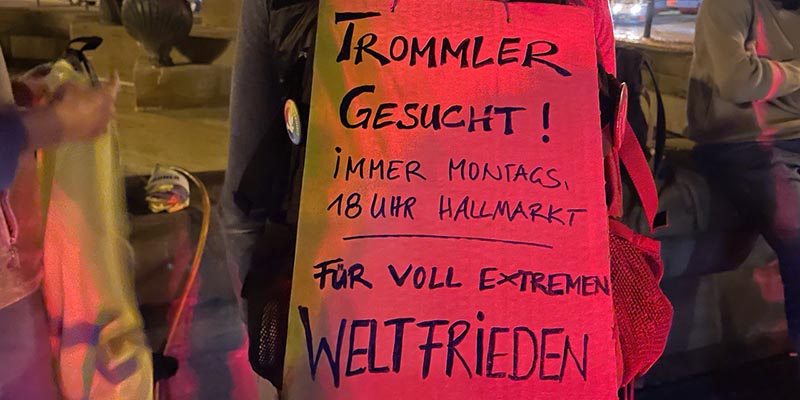 TROMMLER
GESUCHT!
iMMER MONTAGS,
18 UHR HALLMARKT
FÜR VOLL EXTREMEN
WELTFRiEDEN